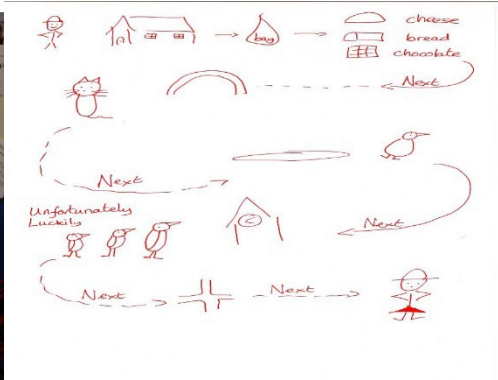 cheese
bag
bread
chocolate
Next
Next
Unfortunately
Luckily
Next
Next
Next